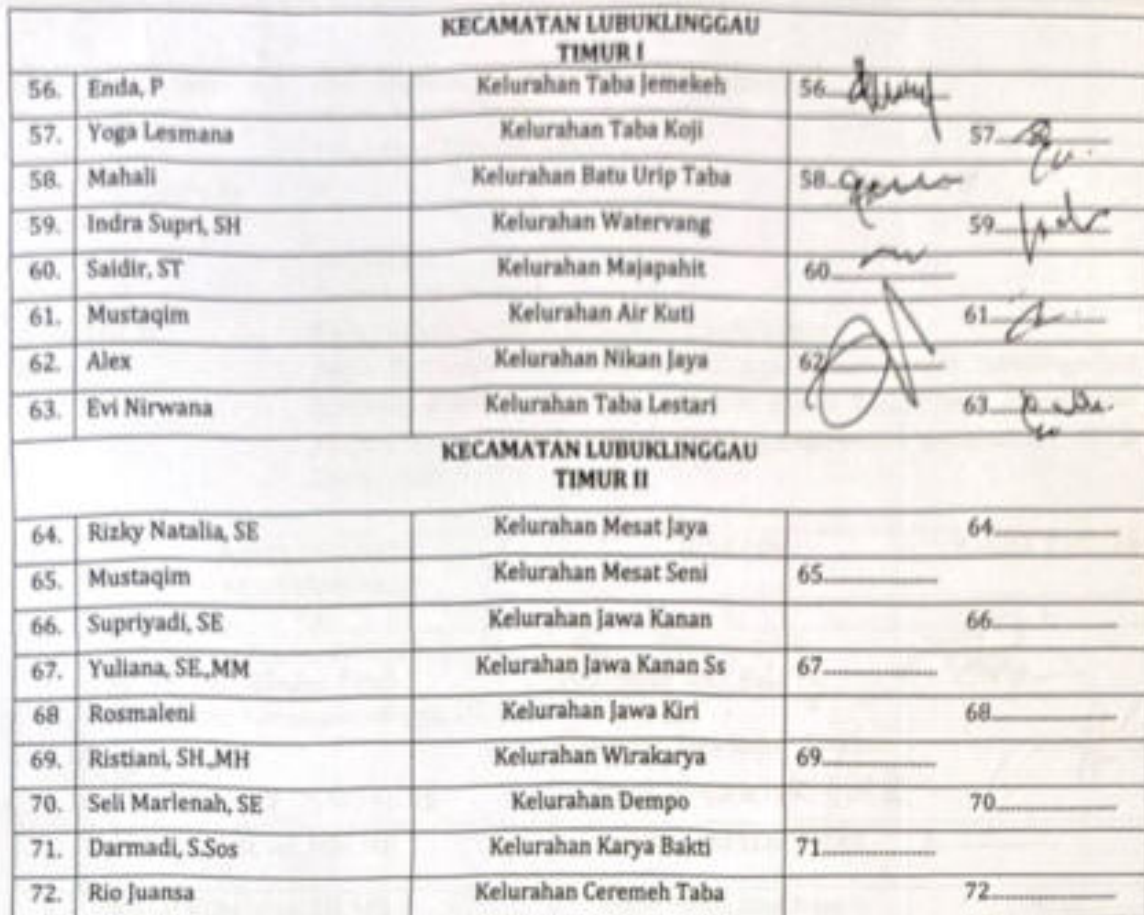 KECAMATAN LUBUKLINGGAU
TIMUR I
56. Enda, P Kelurahan Taba Jemekeh 56
57. Yoga Lesmana Kelurahan Taba Koji 57
58. Mahali Kelurahan Batu Urip Taba 58
59. Indra Supri, SH Kelurahan Watervang 59
60. Saidir, ST Kelurahan Majapahit 60
61. Mustaqim Kelurahan Air Kuti 61
62. Alex Kelurahan Nikan Jaya 62
63. Evi Nirwana Kelurahan Taba Lestari 63
KECAMATAN LUBUKLINGGAU
TIMUR II
64. Rizky Natalia, SE Kelurahan Mesat Jaya 64
65. Mustaqim Kelurahan Mesat Seni 65
66. Supriyadi, SE Kelurahan Jawa Kanan 66
67. Yuliana, SE.,MM Kelurahan Jawa Kanan Ss 67
68 Rosmaleni Kelurahan Jawa Kiri 68
69. Ristiani, SH.,MH Kelurahan Wirakarya 69
70. Seli Marlenah, SE Kelurahan Dempo 70
71. Darmadi, S.Sos Kelurahan Karya Bakti 71
72. Rio Juansa Kelurahan Ceremeh Taba 72